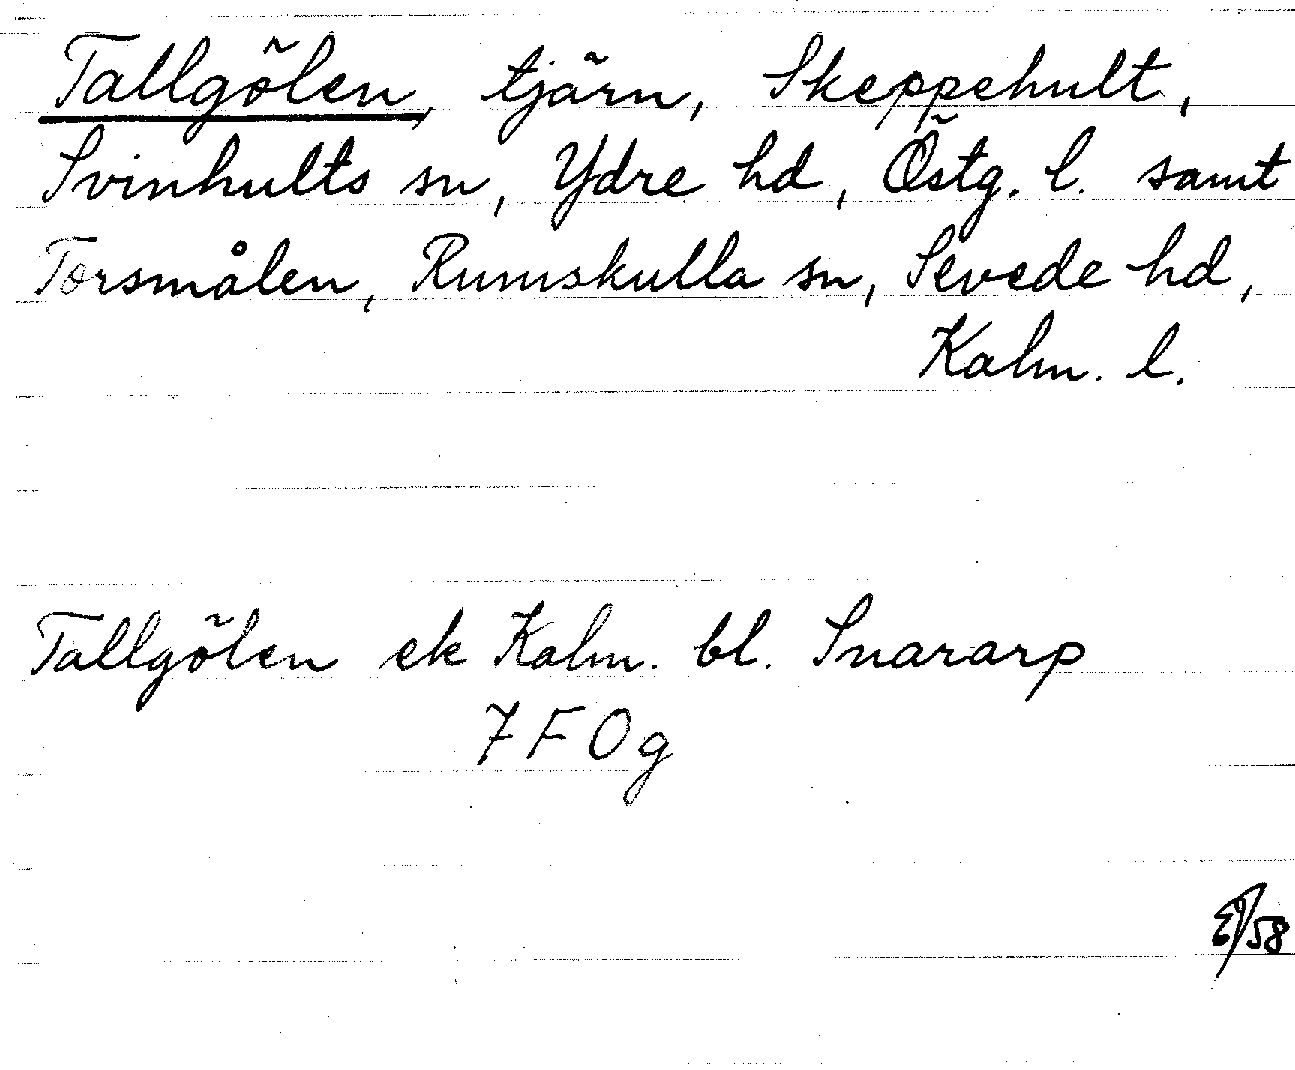 Tallgölen, tjärn, Skeppehult,
Svinhults sn, Ydre hd, Östg. l. samt
Torsmålen, Rumskulla sn, Sevede hd,
Kalm. l.
Tallgölen ek Kalm. bl. Snararp
7 F 0 g
/58